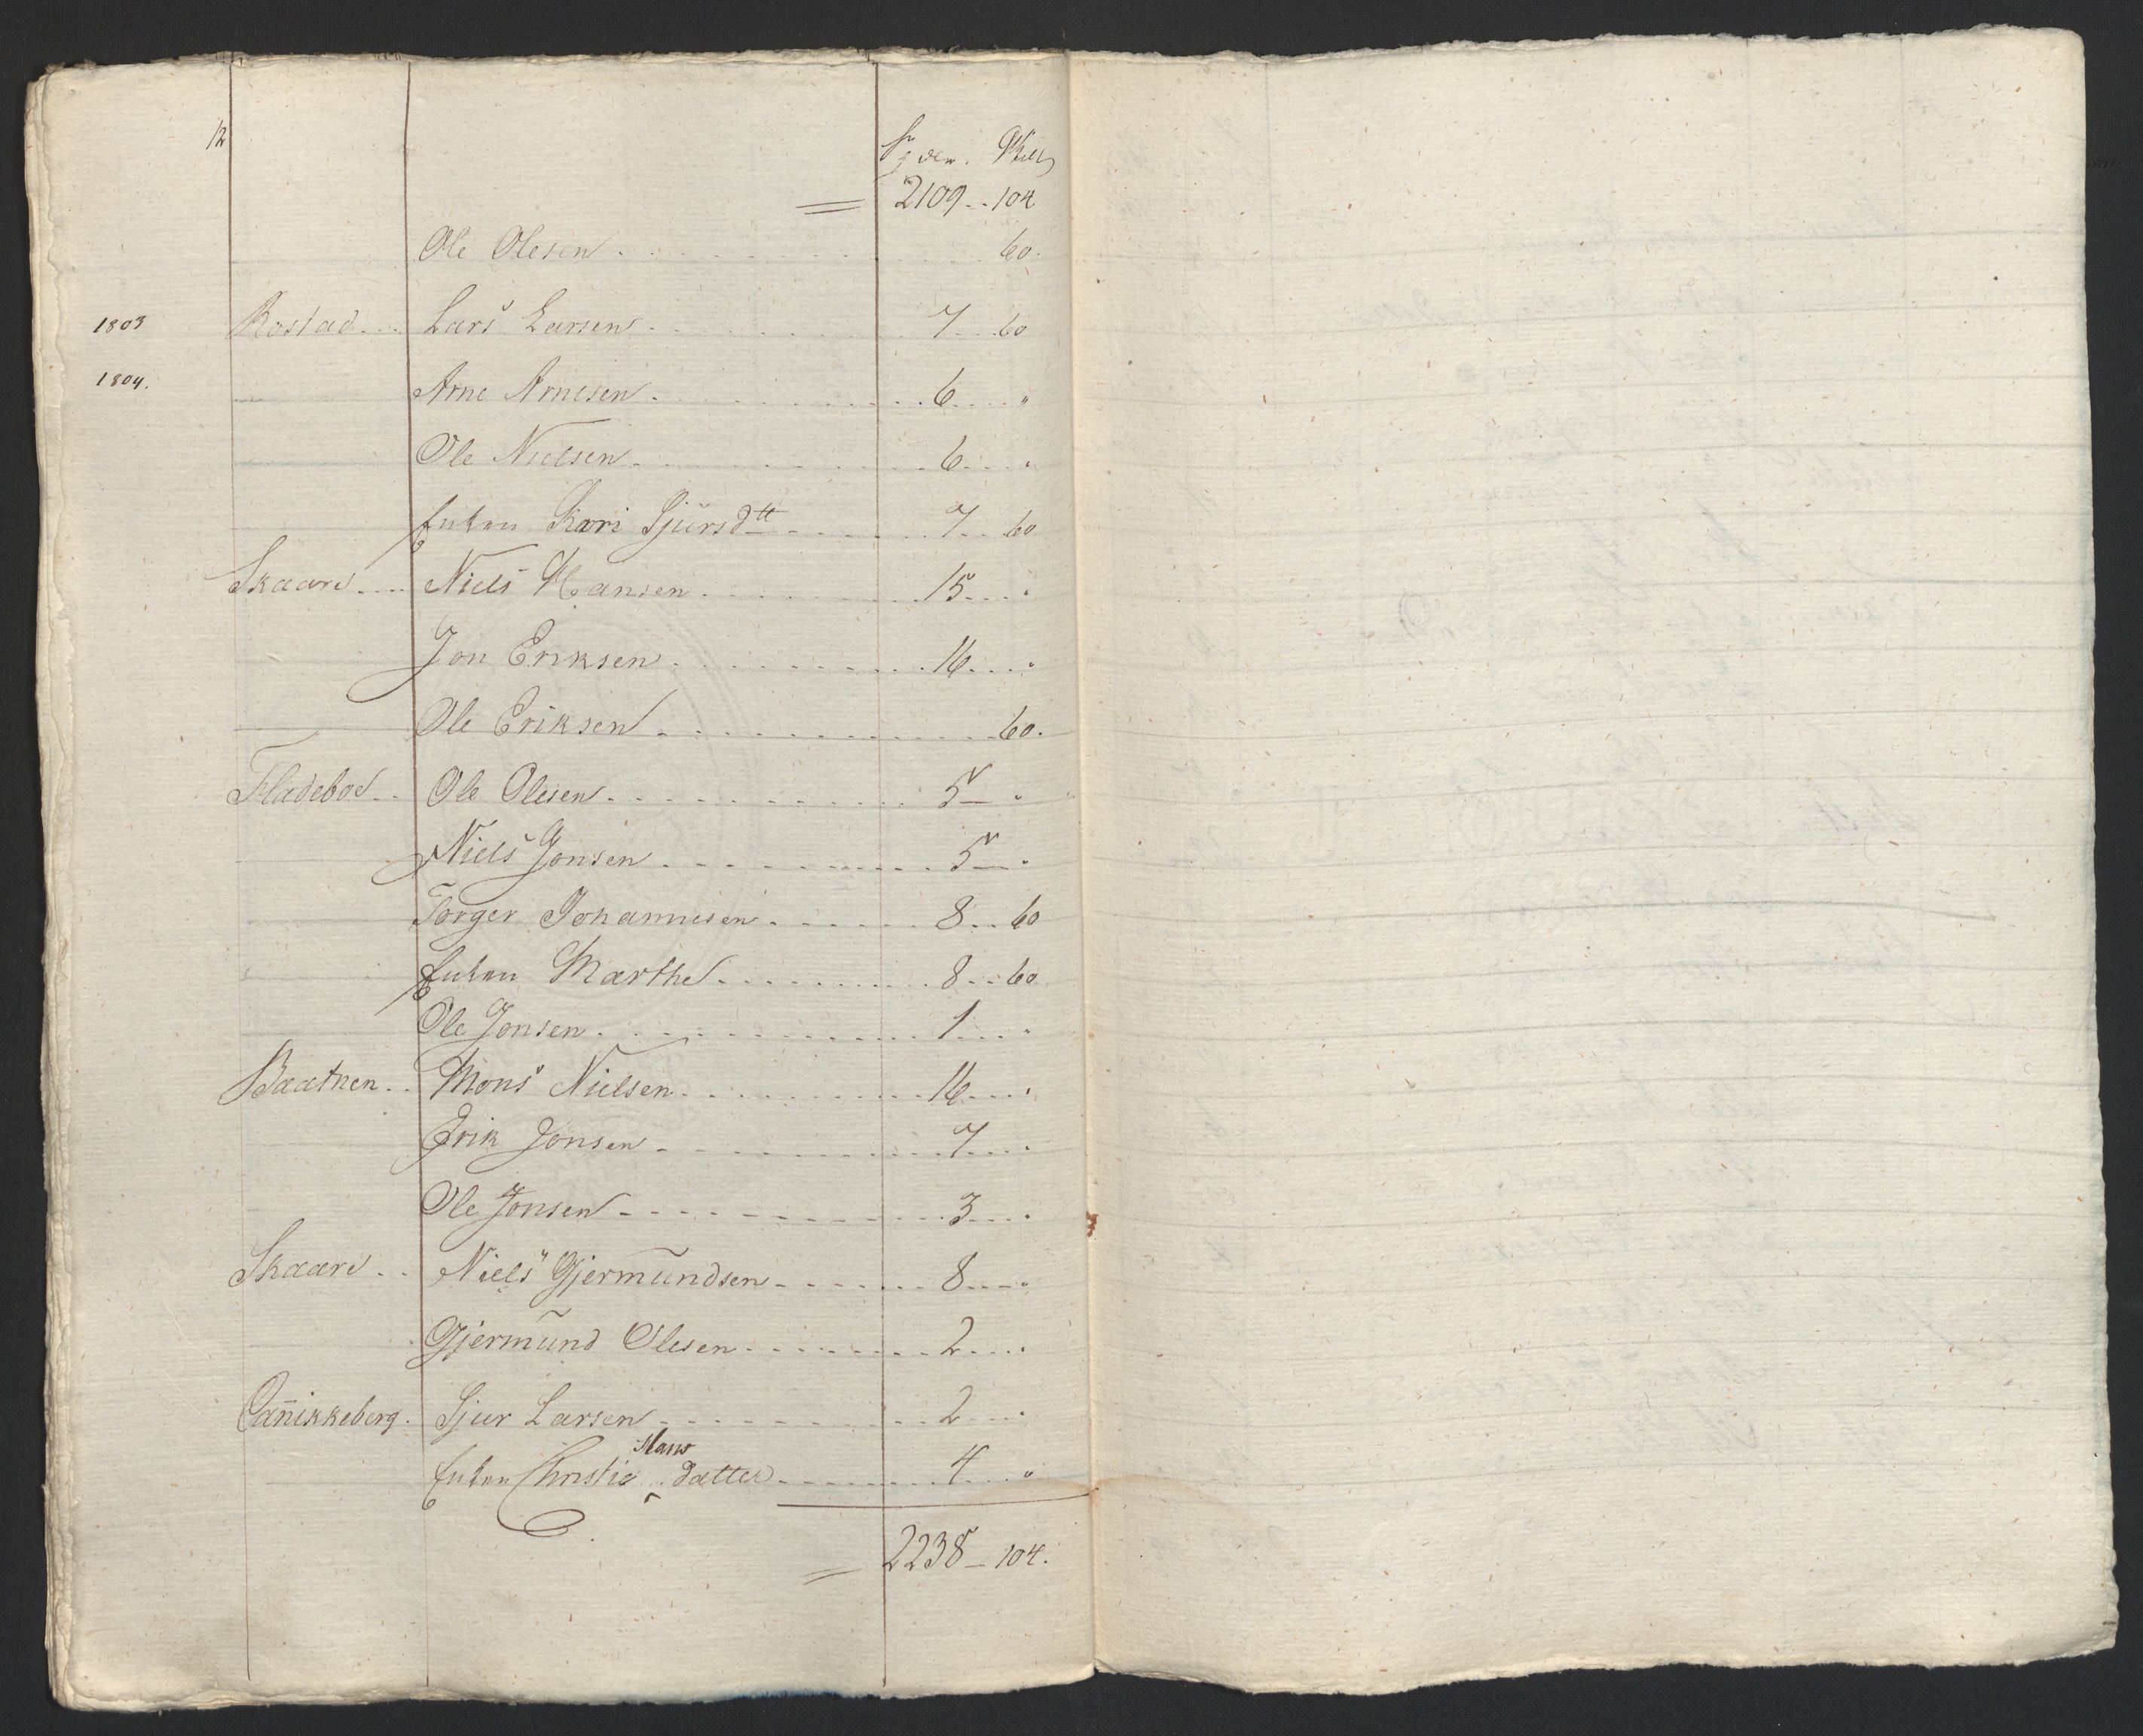 12
Spdlr. Skill
2109 .. 104
Ole Olesen . . . 60.
1803 Rostad ... Lars Larsen . . . 7 .. 60
1804. Arne Arnesen . . . 6 .... "
Ole Nielsen . . . 6 .... "
Enken Kari Sjursdtt . . . 7 ... 60
Skaare .... Niels Hansen . . . 15 .... "
Jon Eriksen . . . 16 .... "
Ole Eriksen . . . 60.
Fladeboe .. Ole Olesen . . . 5 — "
Niels Jonsen . . . 5 — "
Torger Johannesen . . . 8 .. 60
Enken Marthe . . . 8 .. 60
Ole Jonsen . . . 1 .... "
Baatnen .. Mons Nielsen . . . 16 .... "
Erik Jonsen . . . 7 .... "
Ole Jonsen . . . 3 .... "
Skaare .. Niels Gjermundsen . . . 8 .... "
Gjermund Olesen . . . 2 .... "
Cañikkeberg . Sjur Larsen . . . 2 .... "
Enken Christie Hans datter . . . 4 .... "
2238 — 104.